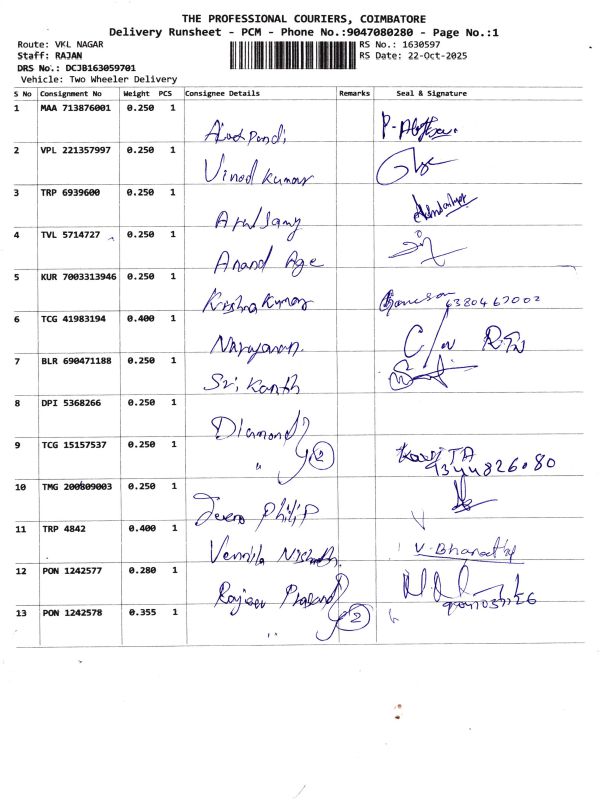 THE PROFESSIONAL COURIERS, COIMBATORE
Delivery Runsheet - PCM - Phone No.:9047080280 - Page No.:1
Route: VKL NAGAR RS No.: 1630597
Staff: RAJAN RS Date: 22-Oct-2025
DRS No.: DCJB163059701
Vehicle: Two Wheeler Delivery
S No Consignment No Weight PCS Consignee Details Remarks Seal & Signature
1 MAA 713876001 0.250 1
2 VPL 221357997 0.250 1 Vinod Kumar
3 TRP 6939600 0.250 1 Arulsamy
4 TVL 5714727 0.250 1 Anand Age
5 KUR 7003313946 0.250 1 Krishna Kumar
6 TCG 41983194 0.400 1 Narayanan.
7 BLR 690471188 0.250 1 Sri Kanth
8 DPI 5368266 0.250 1 Diamond
9 TCG 15157537 0.250 1 " 2
10 TMG 200809003 0.250 1 Philip
11 TRP 4842 0.400 1 Vennila V. Bharathy
12 PON 1242577 0.280 1 Rajeev Prasand
13 PON 1242578 0.355 1 " 2